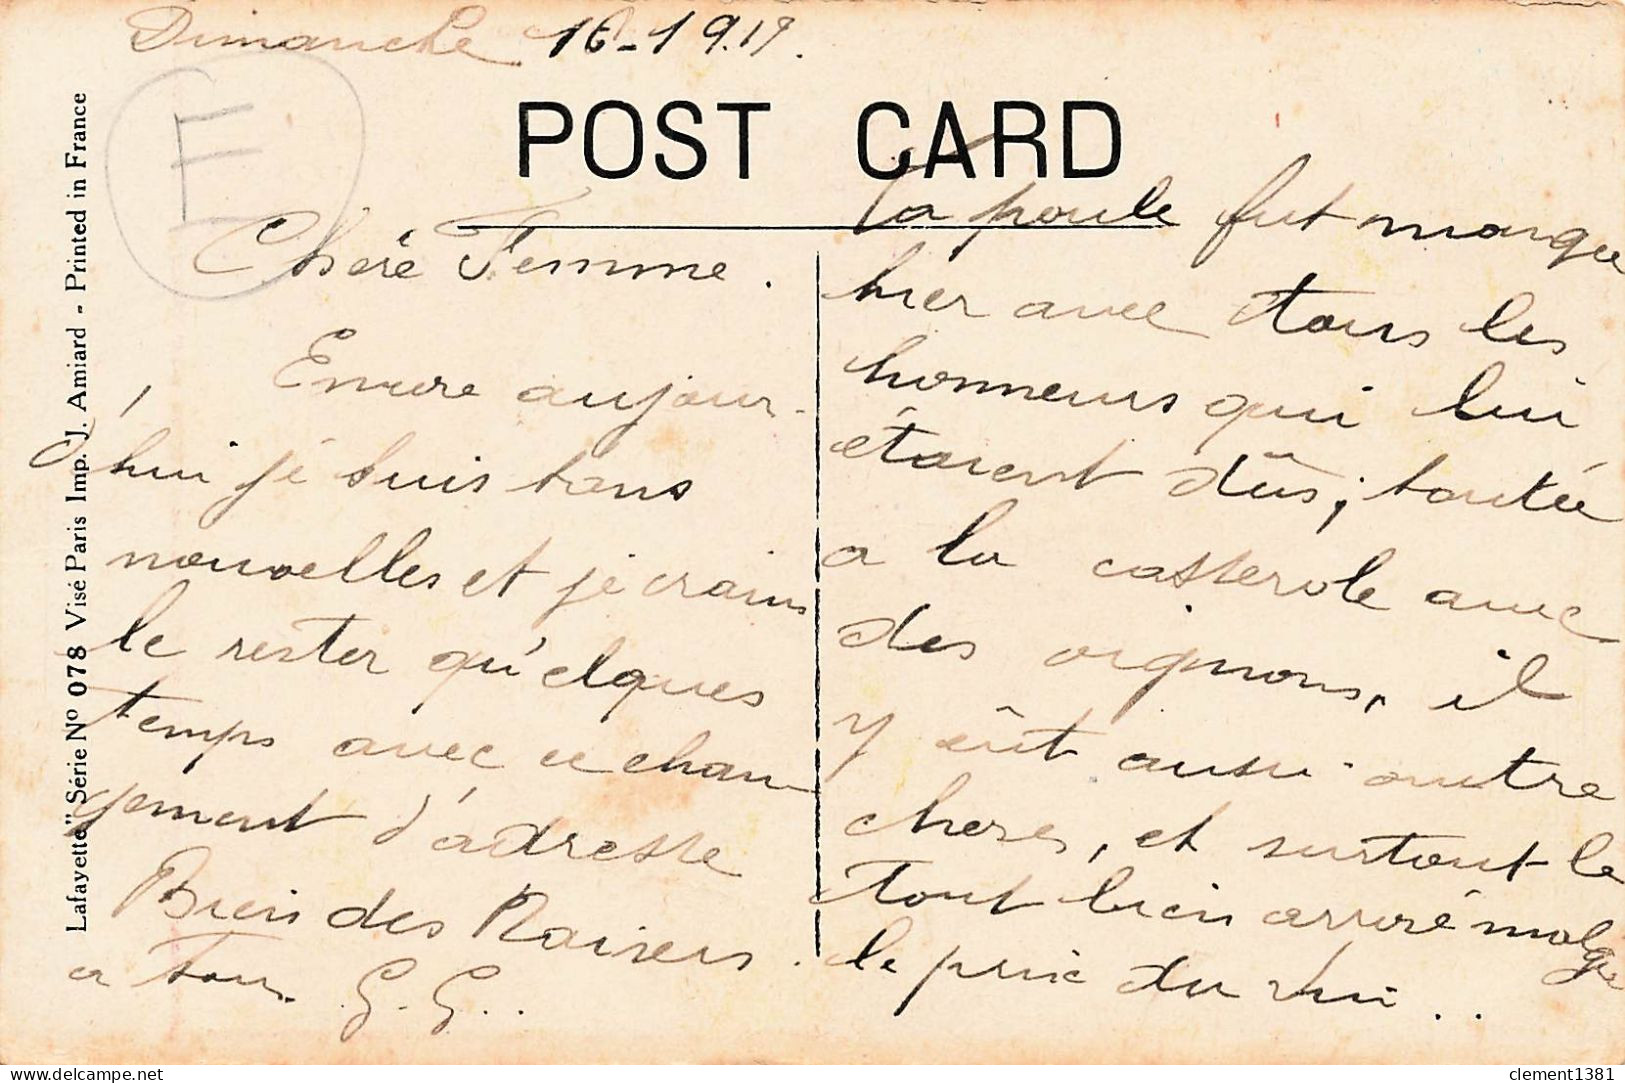 Dimanche 16-1917.
E
POST CARD
Chère Femme.
Encore aujour-
d'hui je suis sans
nouvelles et je crains
le rester qu'elques
temps avec ce chan
gement d'adresse
Bien des Baisers
a tous. G. G..
La poule fut mangée
hier avec tous les
honneurs qui lui
étaient dûs; sautée
a la casserole avec
des oignons, il
y eût aussi autre
chose, et surtout le
tout bien arrosé malgré
le prix du vin..
Lafayette" Série No 078 Visé Paris Imp. J. Amiard - Printed in France
delcampe.net
clement1381